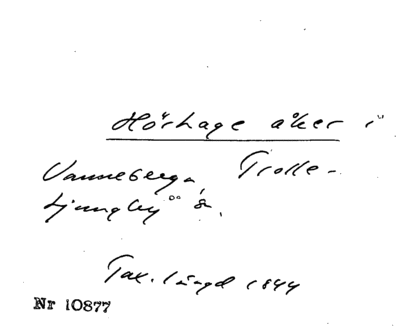 Hörhage åker i
Vanneberga, Trolle-
Ljungby s.
Tax. längd 1844
Nr 10877